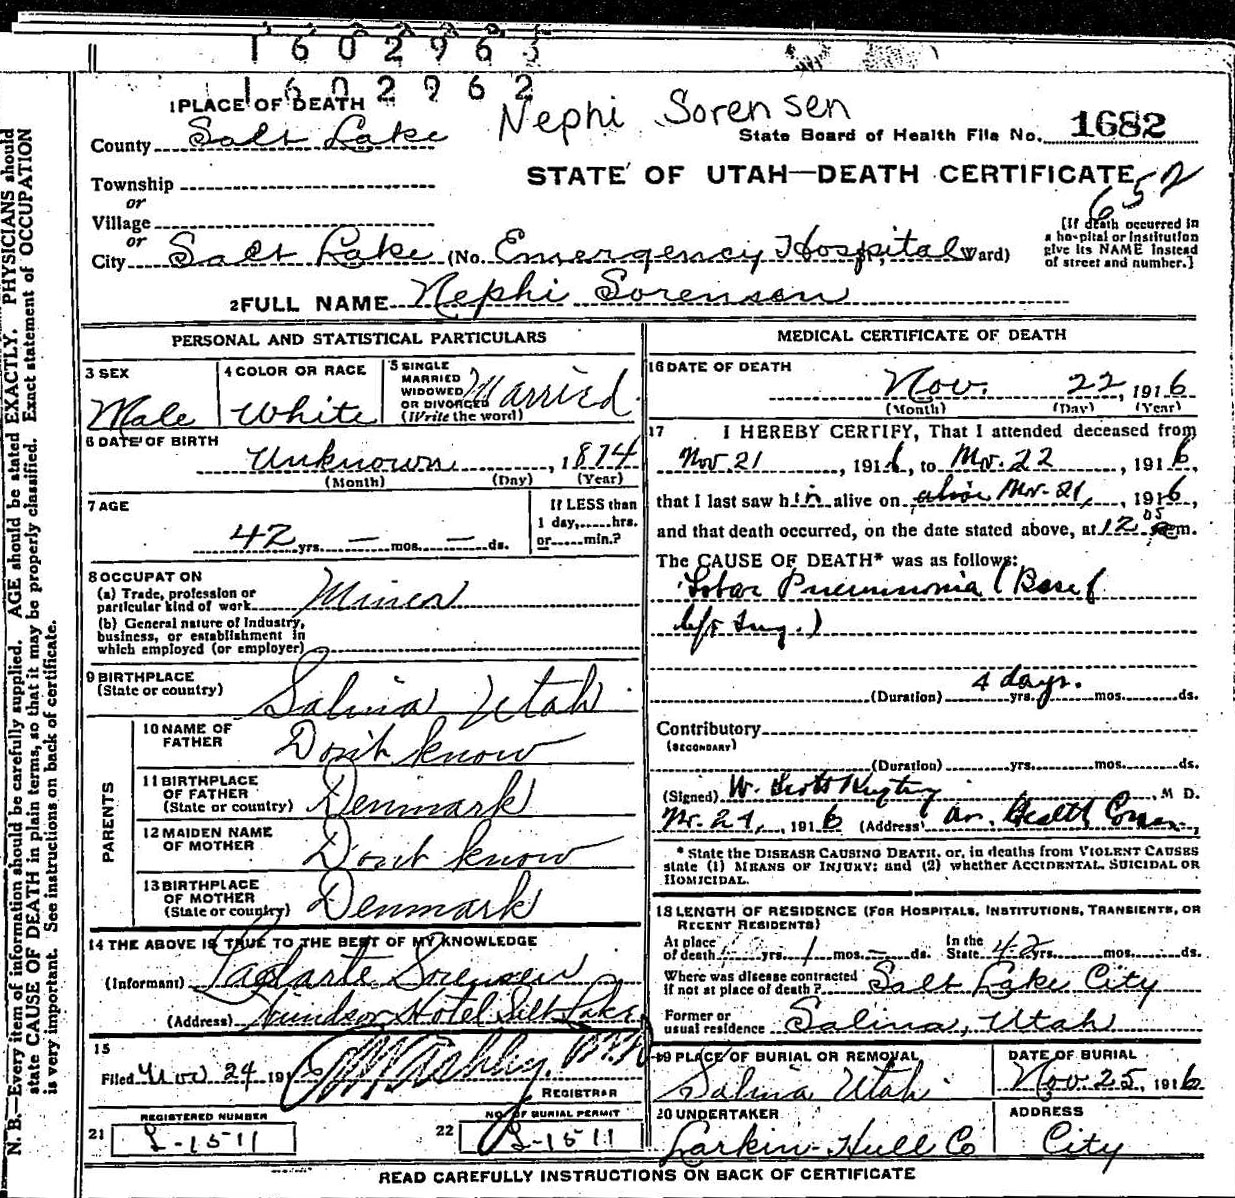 1602963
1602962
1 PLACE OF DEATH
Nephi Sorensen
County Salt Lake
State Board of Health File No. 1682
Township
STATE OF UTAH—DEATH CERTIFICATE
652
or
Village
or
City Salt Lake (No. Emergency Hospital, Ward)
[If death occurred in
a hospital or institution
give its NAME instead
of street and number.]
2 FULL NAME Nephi Sorenson
PERSONAL AND STATISTICAL PARTICULARS
3 SEX
Male
4 COLOR OR RACE
White
5 SINGLE
MARRIED
WIDOWED
OR DIVORCED
(Write the word)
Married
6 DATE OF BIRTH
Unknown, 1874
(Month) (Day) (Year)
7 AGE
42 yrs. — mos. — ds.
If LESS than
1 day,......hrs.
or......min.?
8 OCCUPATION
(a) Trade, profession or
particular kind of work Miner
(b) General nature of Industry,
business, or establishment in
which employed (or employer)
9 BIRTHPLACE
(State or country) Salina Utah
PARENTS
10 NAME OF
FATHER Don't know
11 BIRTHPLACE
OF FATHER
(State or country) Denmark
12 MAIDEN NAME
OF MOTHER Dont know
13 BIRTHPLACE
OF MOTHER
(State or country) Denmark
14 THE ABOVE IS TRUE TO THE BEST OF MY KNOWLEDGE
(Informant) Sorensen
(Address) Windsor Hotel Salt Lake
15
Filed Nov 24 191 6 Ashby, M.D.
REGISTRAR
REGISTERED NUMBER
21 L-1511
NO. OF BURIAL PERMIT
22 L-1511
MEDICAL CERTIFICATE OF DEATH
16 DATE OF DEATH
Nov. 22, 1916
(Month) (Day) (Year)
17 I HEREBY CERTIFY, That I attended deceased from
Nov 21, 1916, to Nov. 22, 1916,
that I last saw h im alive on alive Nov. 21, 1916,
and that death occurred, on the date stated above, at 12 05 m.
The CAUSE OF DEATH* was as follows:
Lobar Pneumonia (Base of
left lung.)
4 days.
(Duration) yrs. mos. ds.
Contributory
(SECONDARY)
(Duration) yrs. mos. ds.
(Signed) W. Scott M. D.
Nov. 24, 1916 (Address) Health
* State the DISEASE CAUSING DEATH, or, in deaths from VIOLENT CAUSES
state (1) MEANS OF INJURY; and (2) whether ACCIDENTAL, SUICIDAL OR
HOMICIDAL.
18 LENGTH OF RESIDENCE (FOR HOSPITALS, INSTITUTIONS, TRANSIENTS, OR
RECENT RESIDENTS)
At place
of death yrs. 1 mos. — ds. In the
State 42 yrs. mos. ds.
Where was disease contracted
if not at place of death? Salt Lake City
Former or
usual residence Salina, Utah
19 PLACE OF BURIAL OR REMOVAL
Salina Utah
DATE OF BURIAL
Nov. 25, 1916
20 UNDERTAKER
Larkin-Hull Co
ADDRESS
City
READ CAREFULLY INSTRUCTIONS ON BACK OF CERTIFICATE
N. B.—Every item of information should be carefully supplied. AGE should be stated EXACTLY. PHYSICIANS should
state CAUSE OF DEATH in plain terms, so that it may be properly classified. Exact statement of OCCUPATION
is very important. See instructions on back of certificate.